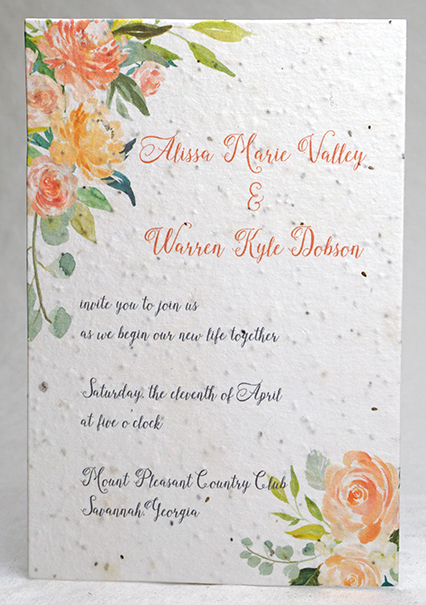 Alissa Marie Valley
&
Warren Kyle Dobson
invite you to join us
as we begin our new life together
Saturday, the eleventh of April
at five o'clock
Mount Pleasant Country Club
Savannah, Georgia